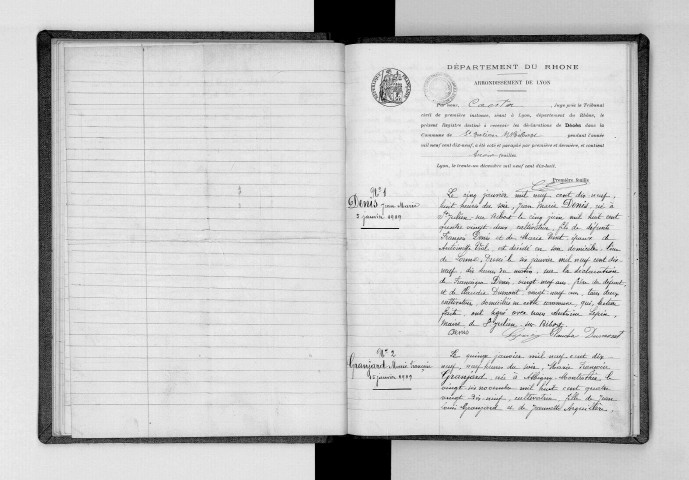 DÉPARTEMENT DU RHONE
ARRONDISSEMENT DE LYON
Par nous, juge près le Tribunal
civil de première instance, séant à Lyon, département du Rhône, le
présent Registre destiné à recevoir les déclarations de Décès dans la
Commune de St Julien s/ Bibost pendant l'année
mil neuf cent dix-neuf, a été coté et paraphé par première et dernière, et contient
feuilles.
Lyon, le trente-un décembre mil neuf cent dix-huit.
Première feuille
No 1
Denis Jean Marie
5 janvier 1919
Le cinq janvier mil neuf cent dix-neuf,
huit heures du soir, Jean Marie Denis, né à
St Julien sur Bibost le cinq juin mil huit cent
quatre vingt deux, cultivateur, fils de défunts
François Denis et de Marie, époux de
Antoinette Vial, est décédé en son domicile, lieu
de. Dressé le six janvier mil neuf cent dix-
neuf, dix heures du matin, sur la déclaration
de Denis, vingt neuf ans, frère du défunt
et de Claudia Dumont vingt-neuf ans, tous deux
cultivateurs domiciliés en cette commune, qui, lecture
faite, ont signé avec nous Antoine
Maire de St Julien sur Bibost.
Denis Claudia Dumont
No 2
Granjard Marie Françoise
15 janvier 1919
Le quinze janvier mil neuf cent dix-
neuf, neuf heures du soir, Marie Françoise
Granjard, née à, le
vingt six novembre mil huit cent quatre
vingt dix-neuf, cultivatrice, fille de Jean
Louis Granjard et de Jeannette